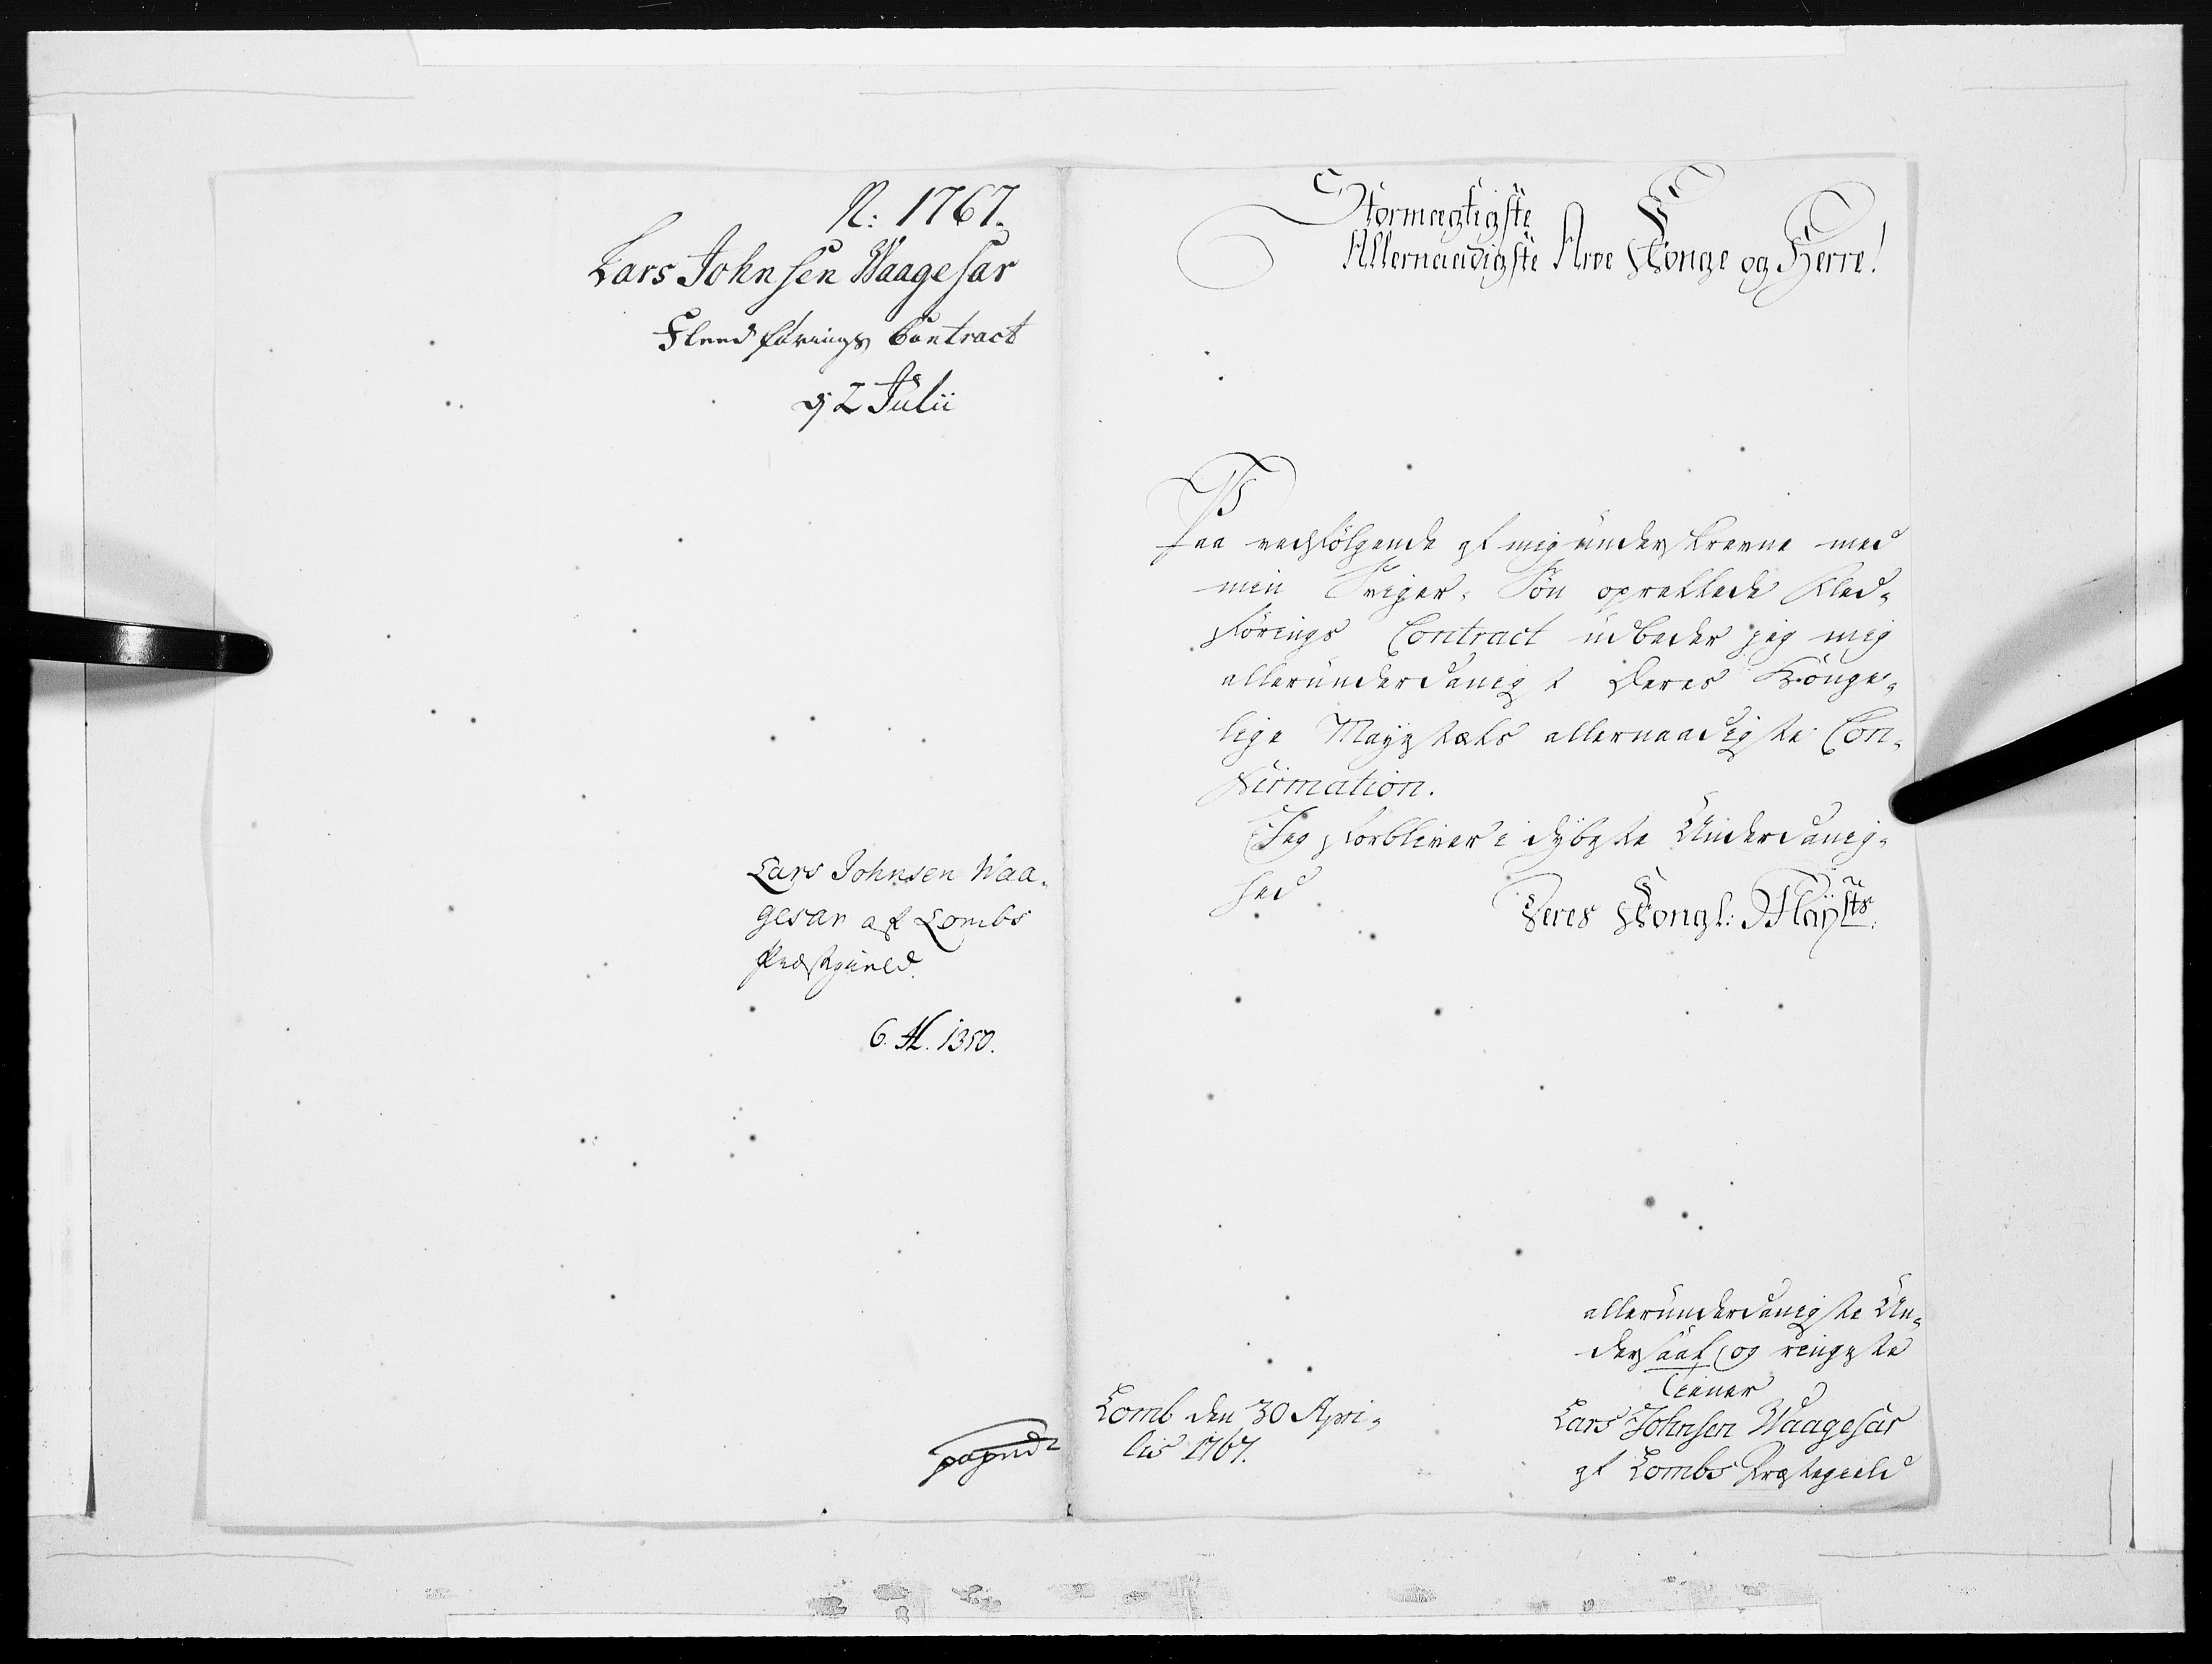 N: 1767.
Lars Johnsen Waagesar
Fledførings Contract
d 2 Julii
Lars Johnsen Waa-
gesar af Lombs
Præstgield.
6. N. 1350.
Stormægtigste
Allernaadigste Arve Konge og Herre!
Paa vedfölgende af mig underskrevne med
min Sviger-Sön oprettede Fled-
förings Contract udbeder jeg mig
allerunderdanigst Deres Konge-
lige Mayestæts allernaadigste Con-
firmation.
Jeg forbliver i dybeste Underdanig-
hed
Deres Kongl: Mayts.
allerunderdanigste Un-
dersaat og ringeste
tiener
Lars Johnsen Waagesar
af Lombs Præstegield
Lomb den 30 Apri-
lis 1767.